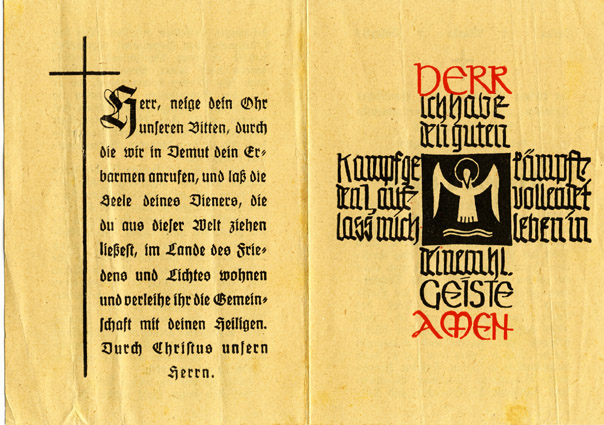 Herr, neige dein Ohr
unseren Bitten, durch
die wir in Demut dein Er-
barmen anrufen, und laß die
Seele deines Dieners, die
du aus dieser Welt ziehen
ließest, im Lande des Frie-
dens und Lichtes wohnen
und verleihe ihr die Gemein-
schaft mit deinen Heiligen.
Durch Christus unsern
Herrn.
HERR
ich habe
den guten
Kampf ge kämpft
den Lauf vollendet
lass mich leben in
deinem hl.
GEISTE
AMEN